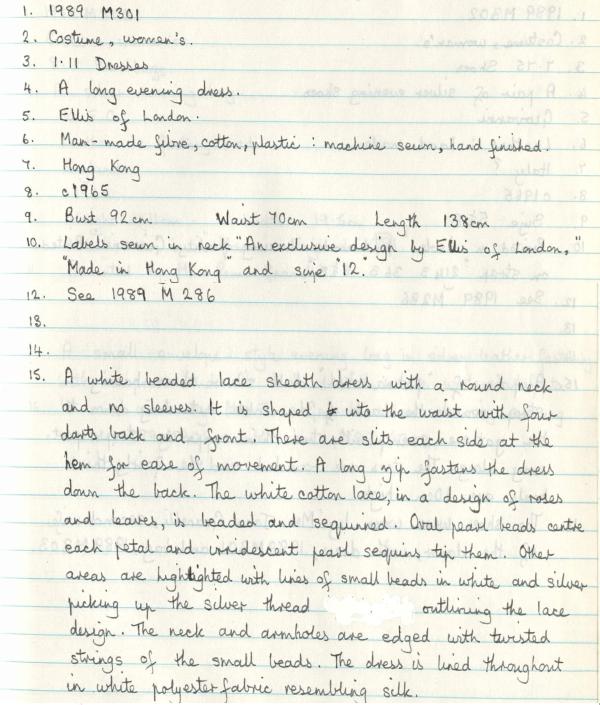 1. 1989 M301
2. Costume, women's.
3. 1.11 Dresses
4. A long evening dress.
5. Ellis of London.
6. Man-made fibre, cotton, plastic : machine sewn, hand finished.
7. Hong Kong
8. c1965
9. Bust 92cm Waist 70cm Length 138cm
10. Labels sewn in neck "An exclusive design by Ellis of London,"
"Made in Hong Kong" and size "12."
12. See 1989 M 286
13.
14.
15. A white beaded lace sheath dress with a round neck
and no sleeves. It is shaped into the waist with four
darts back and front. There are slits each side at the
hem for ease of movement. A long zip fastens the dress
down the back. The white cotton lace, in a design of roses
and leaves, is beaded and sequinned. Oval pearl beads centre
each petal and irridescent pearl sequins tip them. Other
areas are highlighted with lines of small beads in white and silver
picking up the silver thread outlining the lace
design. The neck and armholes are edged with twisted
strings of the small beads. The dress is lined throughout
in white polyester fabric resembling silk.